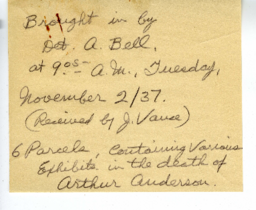 Brought in by
Det. A. Bell,
at 9:05 A.M., Tuesday,
November 2/37.
(Received by J. Vance)
6 Parcels, Containing Various
Exhibits in the death of
Arthur Anderson.